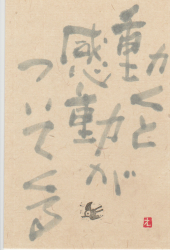 動くと
感動が
ついてくる